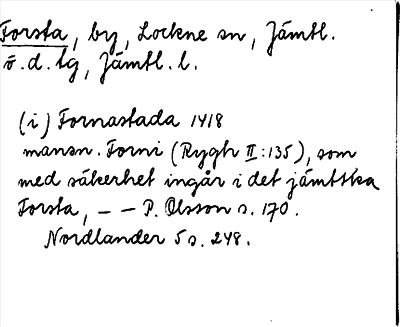 Forsta, by, Lockne sn, Jämtl.
ö.d. tg, Jämtl. l.
(i) Fornastada 1418
mansn. Forni (Rygh II:135), som
med säkerhet ingår i det jämtska
Forsta, – – P. Olsson s. 170.
Nordlander 5 s. 248.